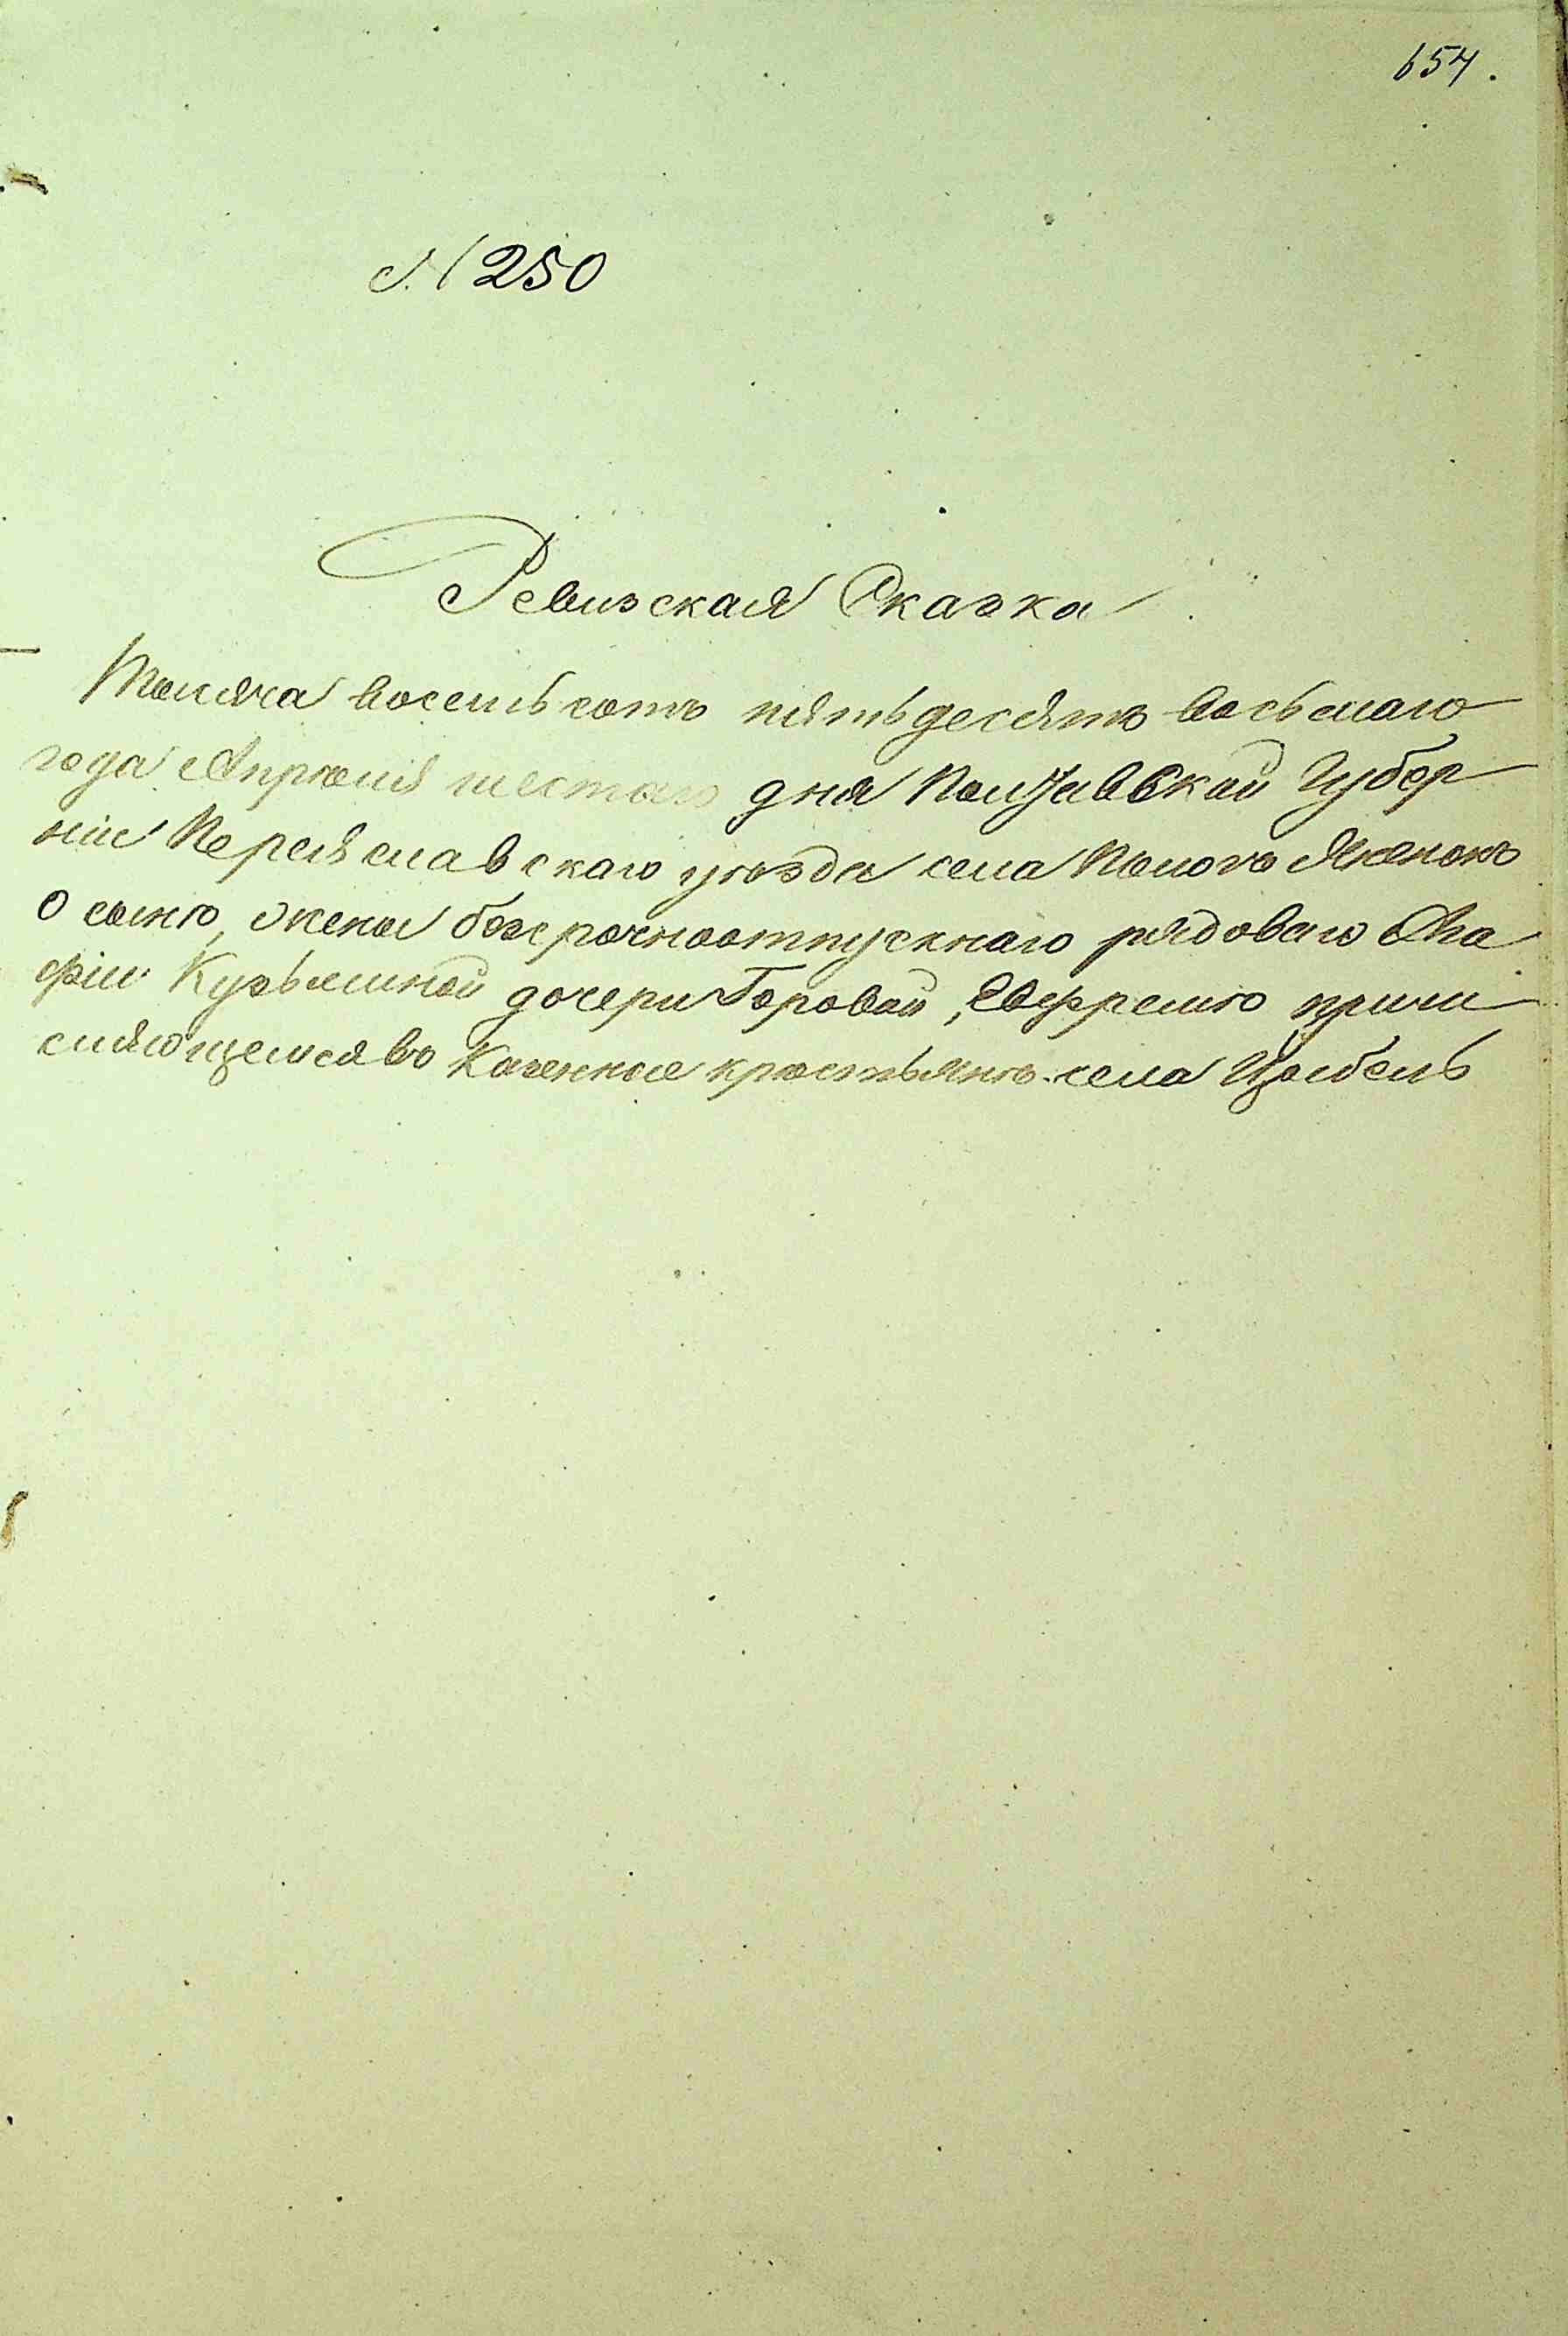 654.
№ 250
Ревизская Сказка
Тысяча восемьсотъ пятьдесятъ восьмаго
года Апрѣля шестаго дня Полтавской Губер
ніи Переяславскаго уѣзда села Пологъ Яненокъ
О сынѣ, жены безсрочноотпускнаго рядоваго
Кузьминой дочери Горовой, причи
сляющемся въ Казенные крестьяне села Цыбель